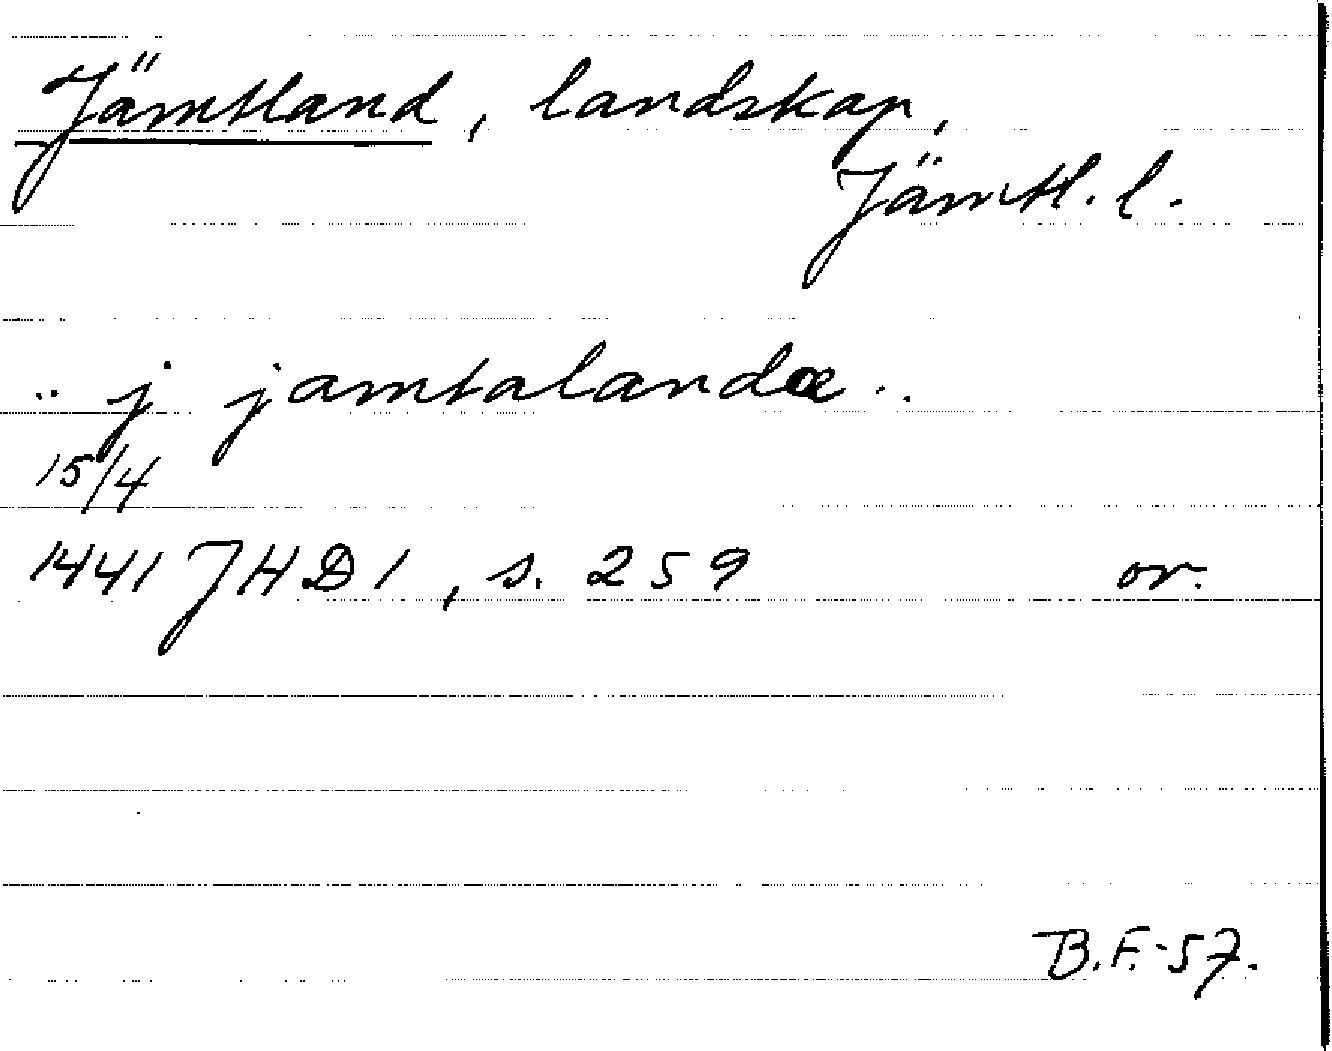 Jämtland, landskap,
Jämtl. l.
.. j jamtalandæ ..
15/4
1441 JHD 1, s. 259 or.
B.F.-57.